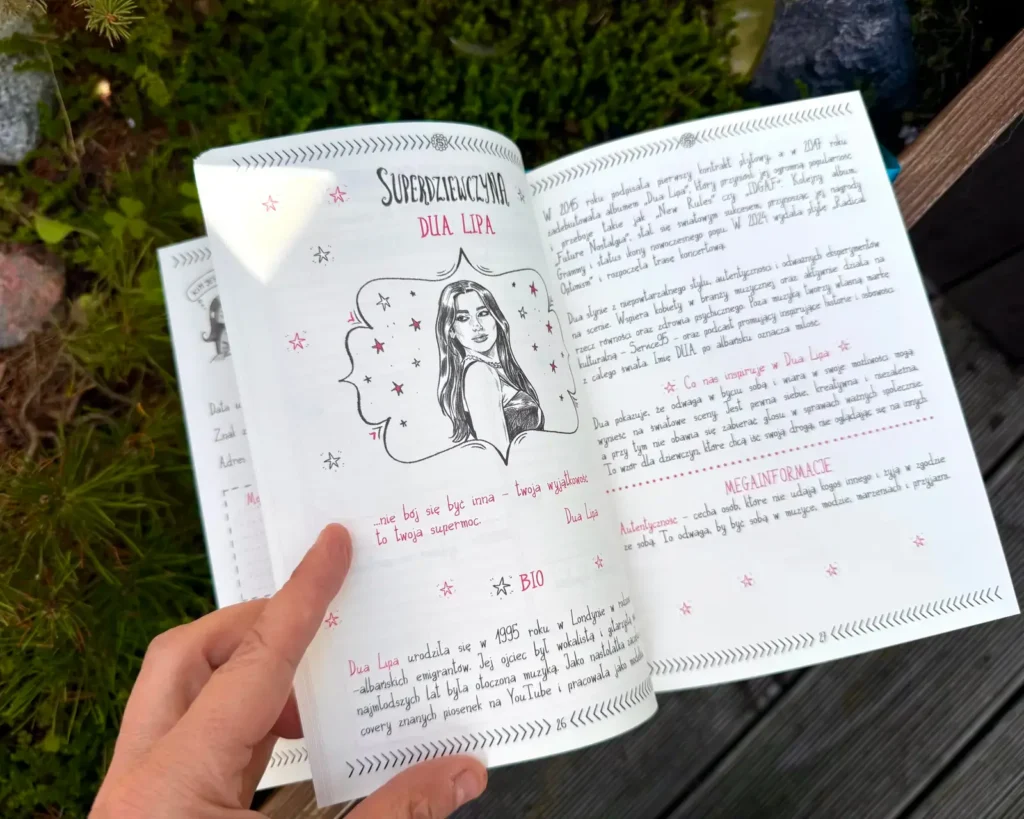 SUPERDZIEWCZYNA
DUA LIPA
...nie bój się być inna – twoja wyjątkowość
to twoja supermoc.
Dua Lipa
BIO
Dua Lipa urodziła się w 1995 roku w Londynie w
-albańskich emigrantów. Jej ojciec był wokalistą i gitarzystą
najmłodszych lat była otoczona muzyką. Jako nastolatka
covery znanych piosenek na YouTube i pracowała jako
26
W 2015 roku podpisała pierwszy kontrakt płytowy, a w 2017 roku
zadebiutowała albumem „Dua Lipa", który przyniósł jej ogromną popularność
i przeboje takie jak „New Rules" czy „IDGAF". Kolejny album,
„Future Nostalgia", stał się światowym sukcesem, przynosząc jej nagrody
Grammy i status ikony nowoczesnego popu. W 2024 wydała płytę „Radical
Optimism" i rozpoczęła trasę koncertową.
Dua słynie z niepowtarzalnego stylu, autentyczności i odważnych eksperymentów
na scenie. Wspiera kobiety w branży muzycznej oraz aktywnie działa na
rzecz równości oraz zdrowia psychicznego. Poza muzyką tworzy własną markę
kulturalną – Service95 – oraz podcast promujący inspirujące historie i osobowości
z całego świata. Imię DUA po albańsku oznacza miłość.
Co nas inspiruje w Dua Lipa
Dua pokazuje, że odwaga w byciu sobą i wiara w swoje możliwości mogą
wynieść na światowe sceny. Jest pewna siebie, kreatywna i niezależna,
a przy tym nie obawia się zabierać głosu w sprawach ważnych społecznie.
To wzór dla dziewczyn, które chcą iść swoją drogą, nie oglądając się na innych.
MEGAINFORMACJE
Autentyczność – cecha osób, które nie udają kogoś innego i żyją w zgodzie
ze sobą. To odwaga, by być sobą w muzyce, modzie, marzeniach i przyjaźni.
Data u
Znak z
Adres